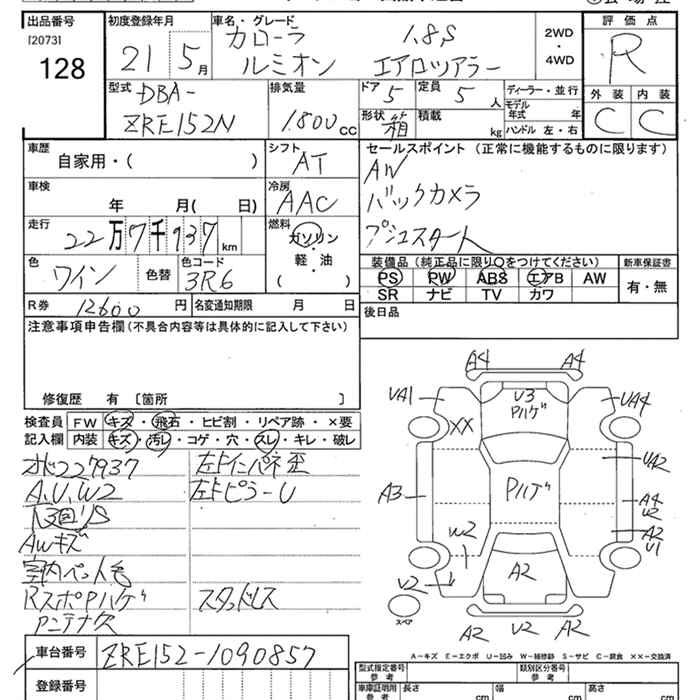 出品番号
[2073]
128
初度登録年月
21 5月
車名・グレード
カローラ 1.8S
ルミオン エアロツアラー
2WD
・
4WD
評価点
R
外装 内装
C C
型式
DBA-
ZRE152N
排気量
1.800cc
ドア 5
定員 5人
形状 箱
積載 kg
ディーラー・並行
モデル年式 年
ハンドル 左・右
車歴
自家用・( )
シフト
AT
車検
年 月( 日)
冷房
AAC
走行
22万7千937km
燃料
ガソリン
・
軽・油
( )
色
ワイン
色替
色コード
3R6
R券 12600円
名変通知期限 月 日
セールスポイント (正常に機能するものに限ります)
AW
バックカメラ
プシュスタート
装備品 (純正品に限り○をつけてください)
PS PW ABS エアB AW
SR ナビ TV カワ
新車保証書
有・無
後日品
注意事項申告欄(不具合内容等は具体的に記入して下さい)
修復歴 有 〔箇所 〕
検査員記入欄
FW キズ・飛石・ヒビ割・リペア跡・×要
内装 キズ・汚レ・コゲ・穴・スレ・キレ・破レ
227937
A.U.W2
下回りS
AWキズ
室内ペット毛
RスポPハゲ
アンテナ欠
左F インパネ歪
左FピラーU
スタッドレス
A4 A4
UA1 V3 UA4
Pハゲ
XX
UA2
A3 Pハゲ A4
W2
A2
W2 U1
V2 A2
スペア
A2 V2 A2
A-キズ E-エクボ U-凹み W-補修跡 S-サビ C-腐食 XX-交換済
車台番号 ZRE152-1090857
登録番号
型式指定番号
参考
類別区分番号
参考
車庫証明用
参考
長さ cm
幅 cm
高さ cm